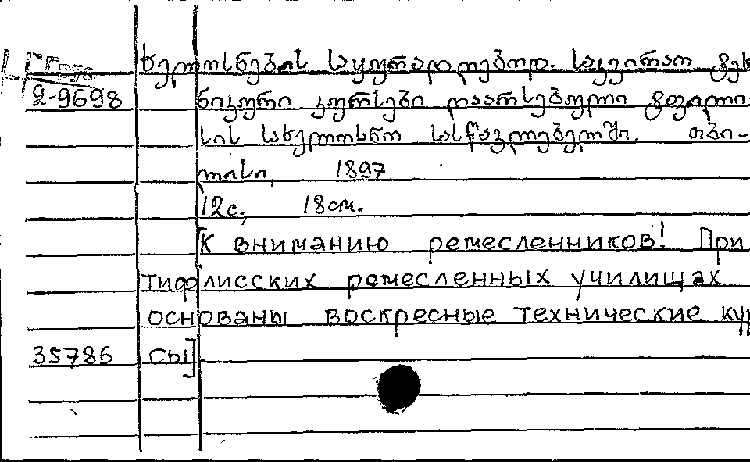 ხელოსნების საყურადღებოდ. საკვირაო ტეხ
2-9698 ნიკური კურსები დაარსებული ტფილი
სის სახელოსნო სასწავლებელში. თბი-
ლისი, 1897
12с., 18см.
[К вниманию ремесленников! При
Тифлисских ремесленных училищах
основаны воскресные технические кур
35786 сы]